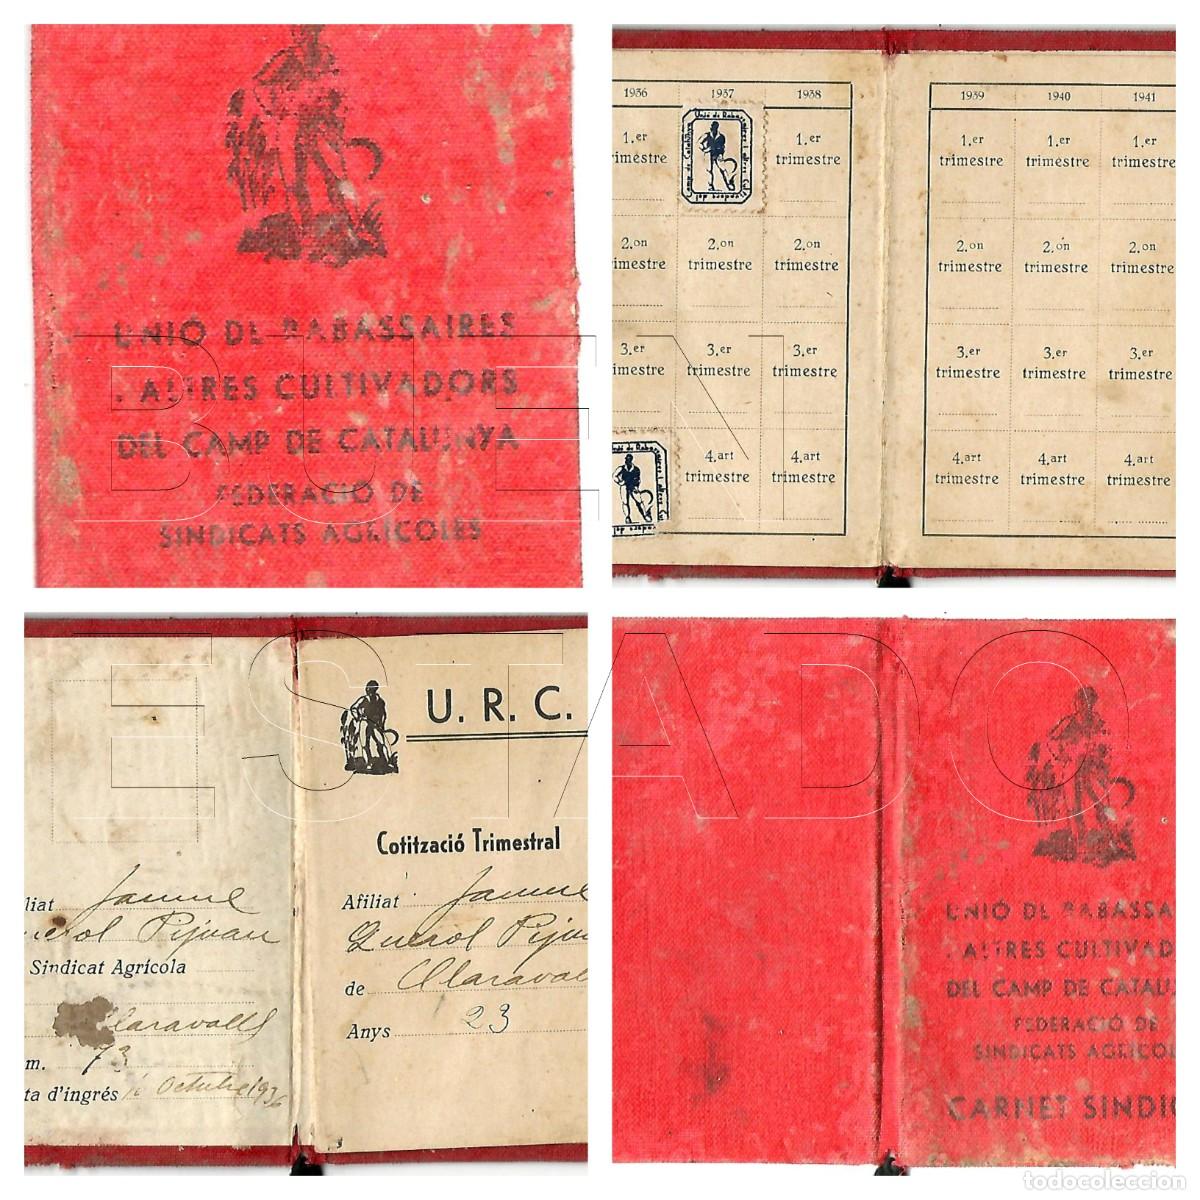 UNIÓ DE RABASSAIRES
I ALTRES CULTIVADORS
DEL CAMP DE CATALUNYA
FEDERACIÓ DE
SINDICATS AGRÍCOLES
1936 1937 1938
1.er trimestre
Unió de Rabassaires i altres Cultivadors del Camp de Catalunya
1.er trimestre
2.on trimestre 2.on trimestre 2.on trimestre
3.er trimestre 3.er trimestre 3.er trimestre
Unió de Rabassaires i altres Cultivadors del
4.art trimestre 4.art trimestre
1939 1940 1941
1.er trimestre 1.er trimestre 1.er trimestre
2.on trimestre 2.on trimestre 2.on trimestre
3.er trimestre 3.er trimestre 3.er trimestre
4.art trimestre 4.art trimestre 4.art trimestre
liat Jaume
Querol Pijuan
Sindicat Agrícola
Claravalls
m. 73
ta d'ingrés 16 Octubre 1936
U. R. C.
Cotització Trimestral
Afiliat Jaume
Querol Pijuan
de Claravalls
Anys 23
UNIÓ DE RABASSA
I ALTRES CULTIVAD
DEL CAMP DE CATALU
FEDERACIÓ DE
SINDICATS AGRÍCOL
CARNET SINDIC
BUEN
ESTADO
todocoleccion